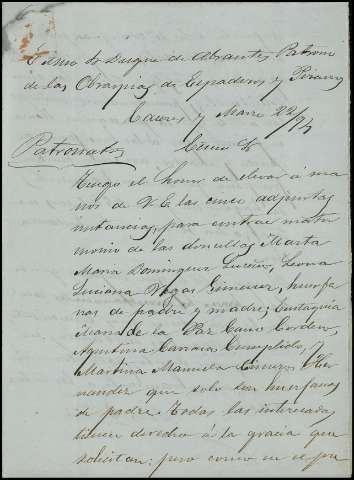 Excmo Sr Duque de Abrantes Patrono
de las Obraspias de Espaderos y Pizarro
Caceres y Marzo 22/94
Patronatos Excmo Sr
Tengo el honor de elevar á ma
nos de V. E. las cinco adjuntas
instancias, para contraer matri
monio de las doncellas Marta
Maria Dominguez, Leona
Luciana Vegas Gimenez, huerfa
nas de padre y madre; Eustaquia
Maria de la Paz Cano Cordero,
Agustina Carrasco Cumplido, y
Martina Manuela Her
nandez que solo son huerfanas
de padre. Todas las interesadas
tienen derecho á la gracia que
solicitan; pero como en el pre